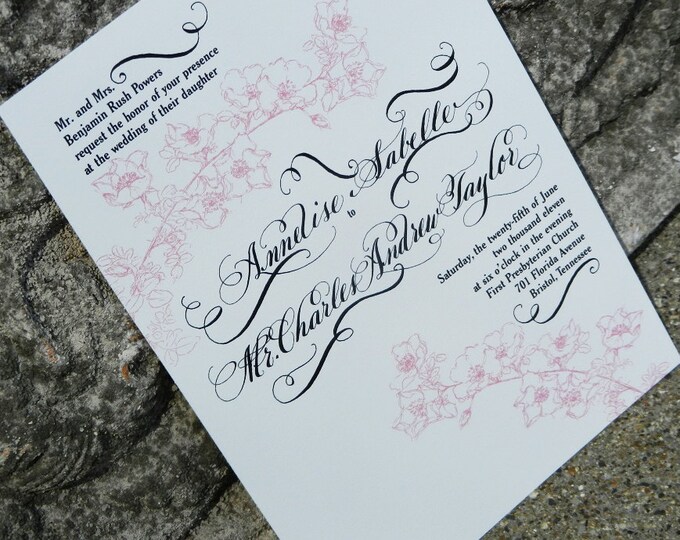 Mr. and Mrs.
Benjamin Rush Powers
request the honor of your presence
at the wedding of their daughter
Annelise Isabelle
to
Mr. Charles Andrew Taylor
Saturday, the twenty-fifth of June
two thousand eleven
at six o'clock in the evening
First Presbyterian Church
701 Florida Avenue
Bristol, Tennessee